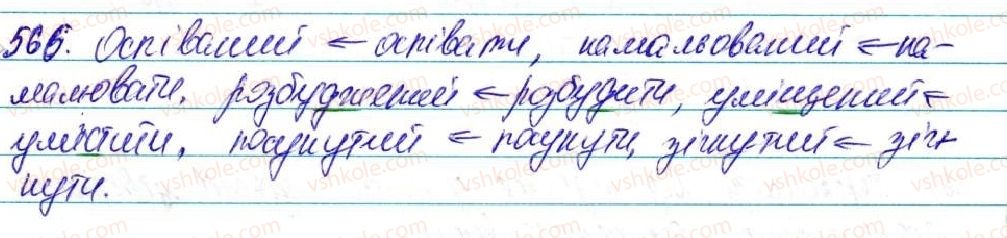 566. Оспіваний ← оспівати, намальований ← на-
малювати, розбуджений ← розбудити, уміщений ←
умістити, посунутий ← посунути, зігнутий ← зігн
нути.